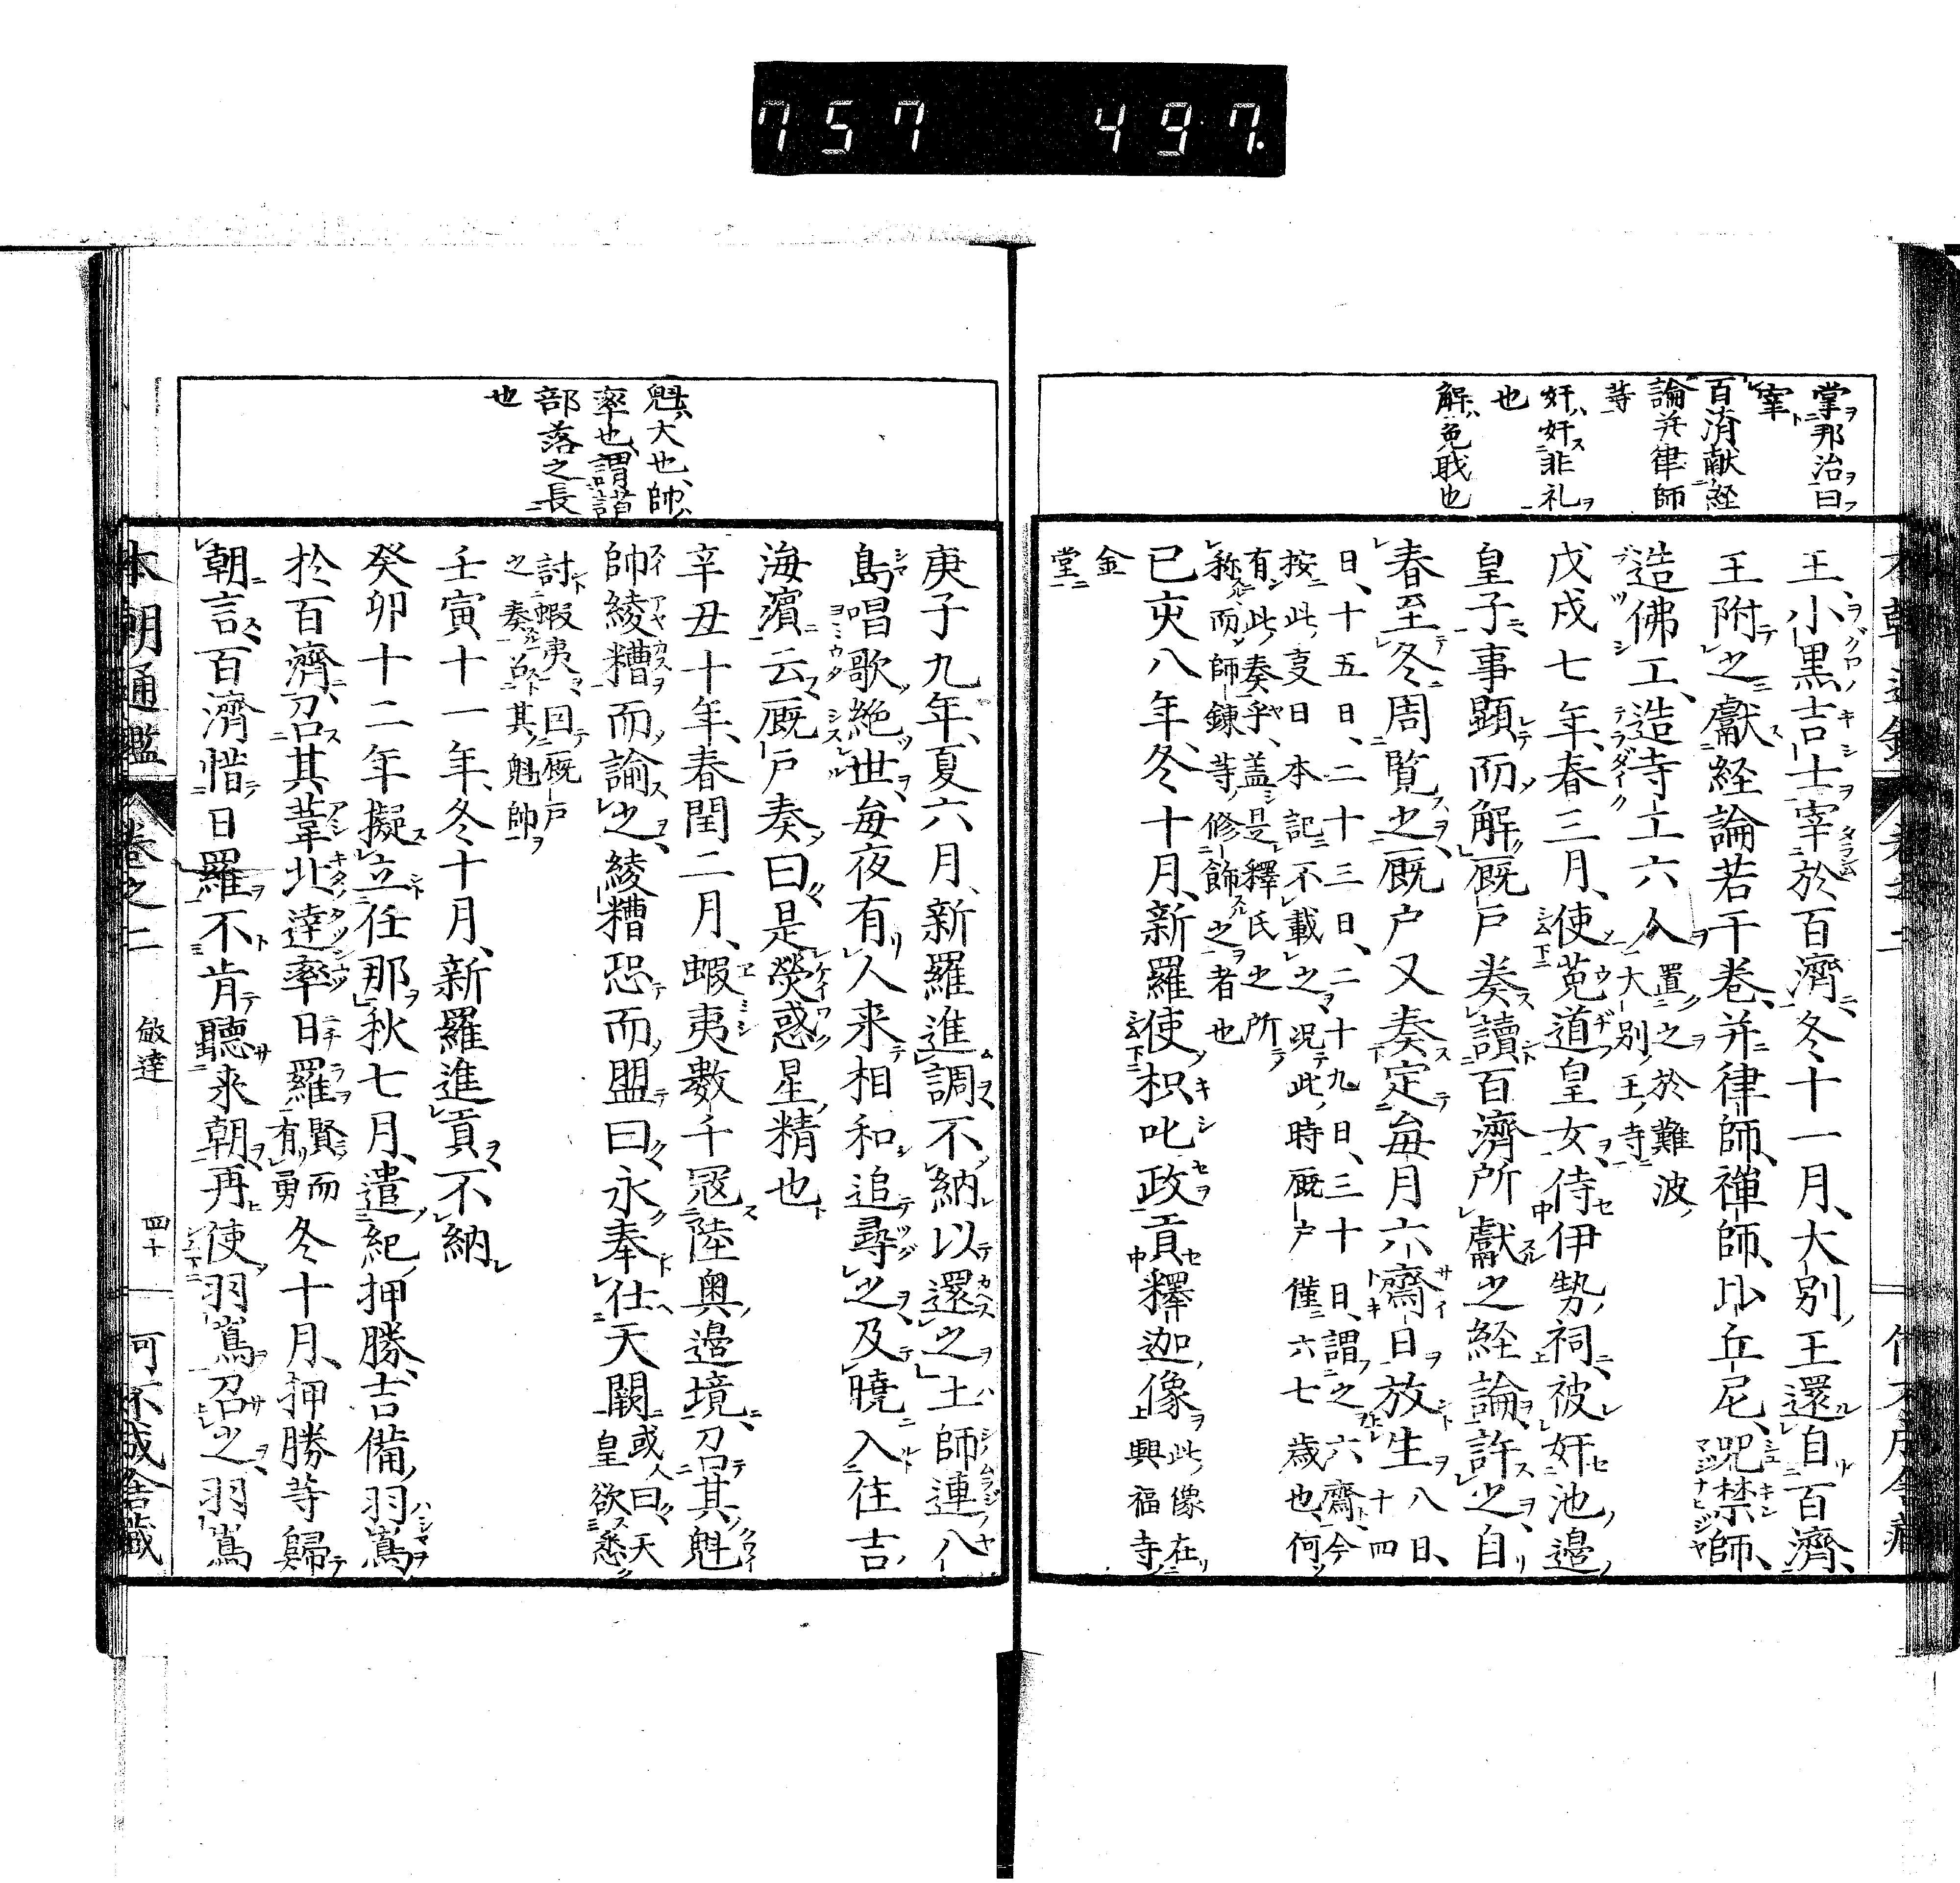 757 497.
掌邦治曰
宰
百済献経
論并律師
等
奸奸非礼
也
解免戝也
王、小黒吉士宰於百濟、冬十一月、大別王還自百濟、
王附之獻経論若干巻、并律師、禅師、比丘尼、咒禁師、
造佛工、造寺工六人置之於難波大別王寺
戊戌七年、春三月、使菟道皇女、侍伊勢祠、被奸池邉
皇子、事顕而解、厩戸奏讀百濟所獻之経論、許之、自
春至冬周覧之、厩戸又奏定毎月六齋日放生八日、十四
日、十五日、二十三日、二十九日、三十日、謂之六齋、今
按此㕝日本記不載之、况此時厩戸僅六七歳也、何
有此奏乎、盖是釋氏之所
称、而師錬等修飾之者也
已亥八年、冬十月、新羅使枳叱政貢釋迦像此像在興福寺
金
堂
魁大也、帥
率也、謂諸
部落之長
也
庚子九年、夏六月、新羅進調不納以還之土師連八
島唱歌絶世、毎夜有人来相和追尋之、及曉入住吉
海濱云、厩戸奏曰是熒惑星精也
辛丑十年、春閏二月、蝦夷數千冦陸奥邉境、召其魁
帥綾糟而諭之、綾糟恐而盟曰、永奉仕天闕或人曰、天皇欲悉
討蝦夷、曰厩戸
之奏召其魁帥
壬寅十一年、冬十月、新羅進貢、不納
癸卯十二年擬立任那、秋七月、遣紀押勝、吉備羽嶌
於百濟、召其葦北達率日羅賢而有勇冬十月、押勝等歸
朝言、百濟惜日羅不肯聽来朝、再使羽嶌召之、羽嶌
本朝通鑑 卷之二 敏達 四十